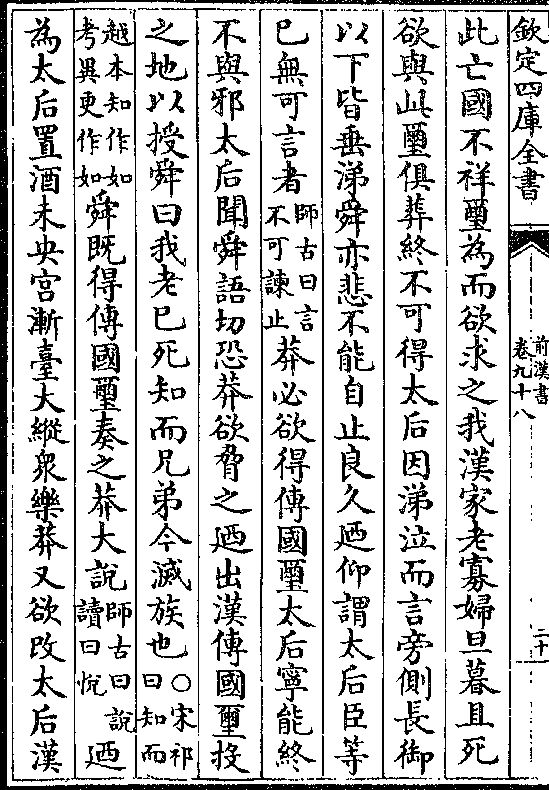 欽定四庫全書
前漢書
卷九十八
二十
此亡國不祥璽為而欲求之我漢家老寡婦旦暮且死
欲與此璽俱葬終不可得太后因涕泣而言旁側長御
以下皆垂涕舜亦悲不能自止良久廼仰謂太后臣等
已無可言者師古曰言不可諫止莽必欲得傳國璽太后寧能終
不與邪太后聞舜語切恐莽欲脅之廼出漢傳國璽投
之地以授舜曰我老已死知而兄弟今滅族也○宋祁曰知而
越本知作如考異更作如舜既得傳國璽奏之莽大說師古曰說讀曰悅廼
為太后置酒未央宮漸臺大縱衆樂莽又欲改太后漢